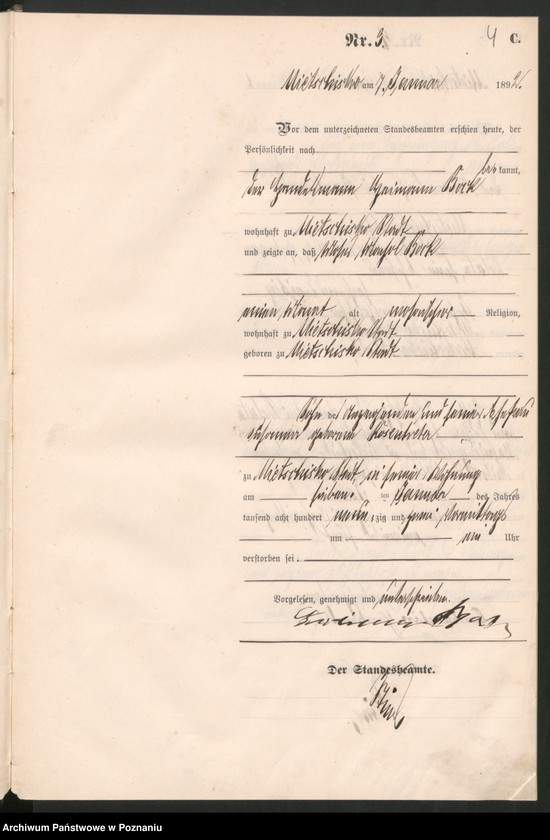 Nr. 3. 4 C.
Mietschisko am 7. Januar 1892.
Vor dem unterzeichneten Standesbeamten erschien heute, der
Persönlichkeit nach
bekannt,
der Handelsmann Heimann Bock
wohnhaft zu Mietschisko Stadt
und zeigte an, daß Bock
einen Monat alt mosaischer Religion,
wohnhaft zu Mietschisko Stadt
geboren zu Mietschisko Stadt
Sohn des Anzeigenden und seiner Ehefrau
geborene Rosentreter
zu Mietschisko Stadt, in seiner Wohnung
am sieben ten Januar des Jahres
tausend acht hundert neun zig und zwei Vormittags
um ein Uhr
verstorben sei.
Vorgelesen, genehmigt und unterschrieben.
Heimann Bock
Der Standesbeamte.
Archiwum Państwowe w Poznaniu